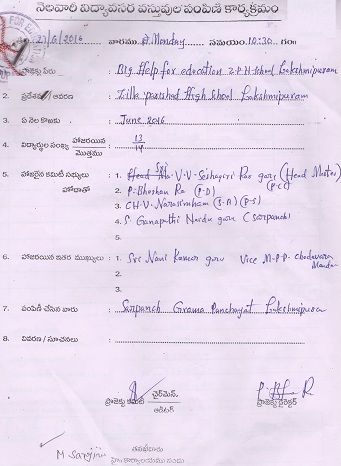 నెలవారి విద్యావసర వస్తువుల పంపిణి కార్యక్రమం
27/6/2016 వారము Monday సమయం 10:30 గం॥
ప్రాజెక్టు పేరు : Big Help for education Z.P.H School Lakshmipuram
2. ప్రదేశము / ఆవరణ : Zilla parishad High School Lakshmipuram
3. ఏ నెల కొఱకు : June 2016
4. విద్యార్థుల సంఖ్య హాజరయిన / మొత్తము : 13 / 14
5. హాజరైన కమిటీ సభ్యులు : 1. Sri V.V. Seshagiri Rao garu (Head Master)
హోదాతో 2. P. Bhushan Ra (P.D) (P.C)
3. CH.V. Narasimham (P.A) (P.S)
4. S. Ganapathi Naidu garu (Sarpanch)
5.
6. హాజరయిన ఇతర ముఖ్యులు : 1. Sri Nani Kumar garu Vice M.P.P Chodavaram Mandal
2.
3.
7. పంపిణీ చేసిన వారు : Sarpanch Grama Panchayat Lakshmipura
8. వివరణ / సూచనలు :
ప్రాజెక్టు కమిటి చైర్‌మెన్,
ఆడిటర్
ప్రాజెక్టు డైరెక్టర్
M Saroji
తనిఖీదారు